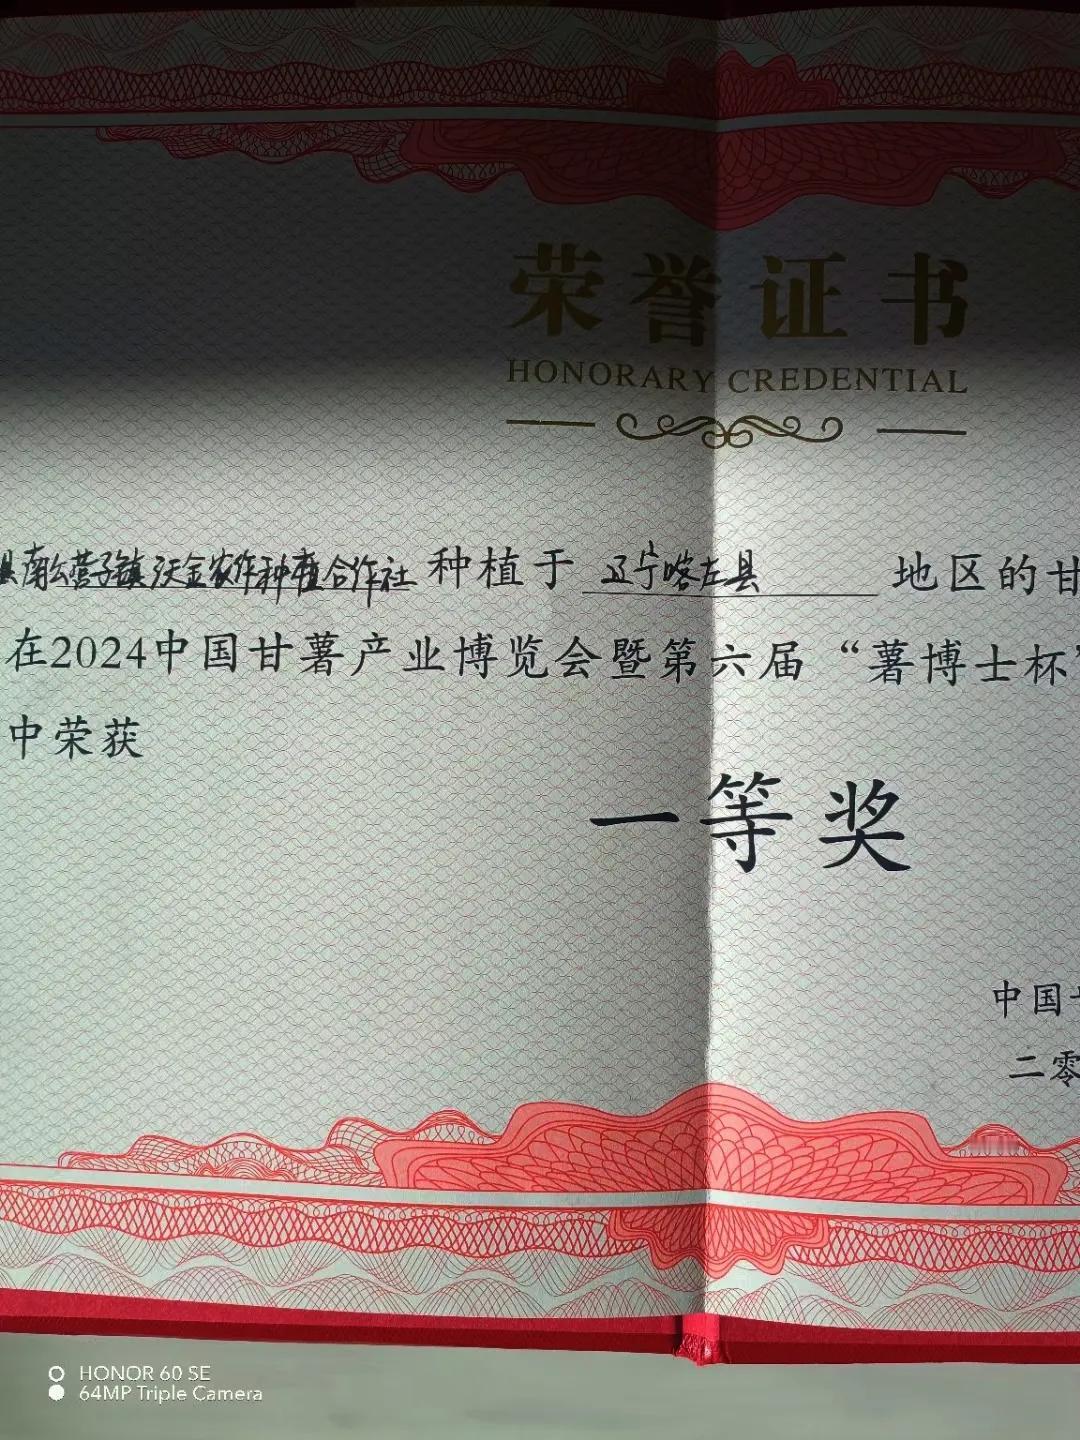 荣誉证书
HONORARY CREDENTIAL
县南公营子镇沃金农作种植合作社 种植于 辽宁喀左县 地区的甘
在2024中国甘薯产业博览会暨第六届“薯博士杯”
中荣获
一等奖
中国
二零
HONOR 60 SE
64MP Triple Camera